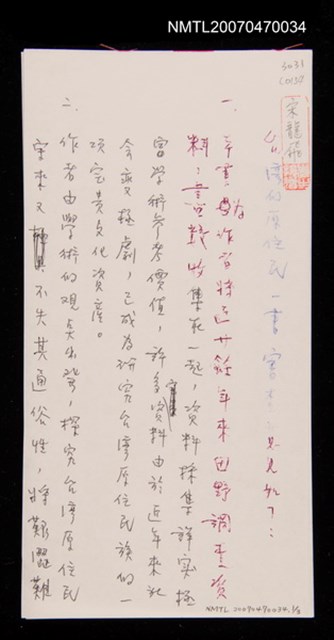 NMTL20070470034
宋龍飛
台灣的原住民一書審查意見如下：
一、
本書為作者將近廿餘年來田野調查資
料，薈萃收集在一起，資料採集詳實極
富學術參考價值，許多資料由於近年來社
會變遷極劇，已成為研究台灣原住民族的一
項寶貴文化資產。
二、
作者由學術的觀點出發，探究台灣原住民
宋來又不失其通俗性，將艱澀難
NMTL 20070470034.1/8